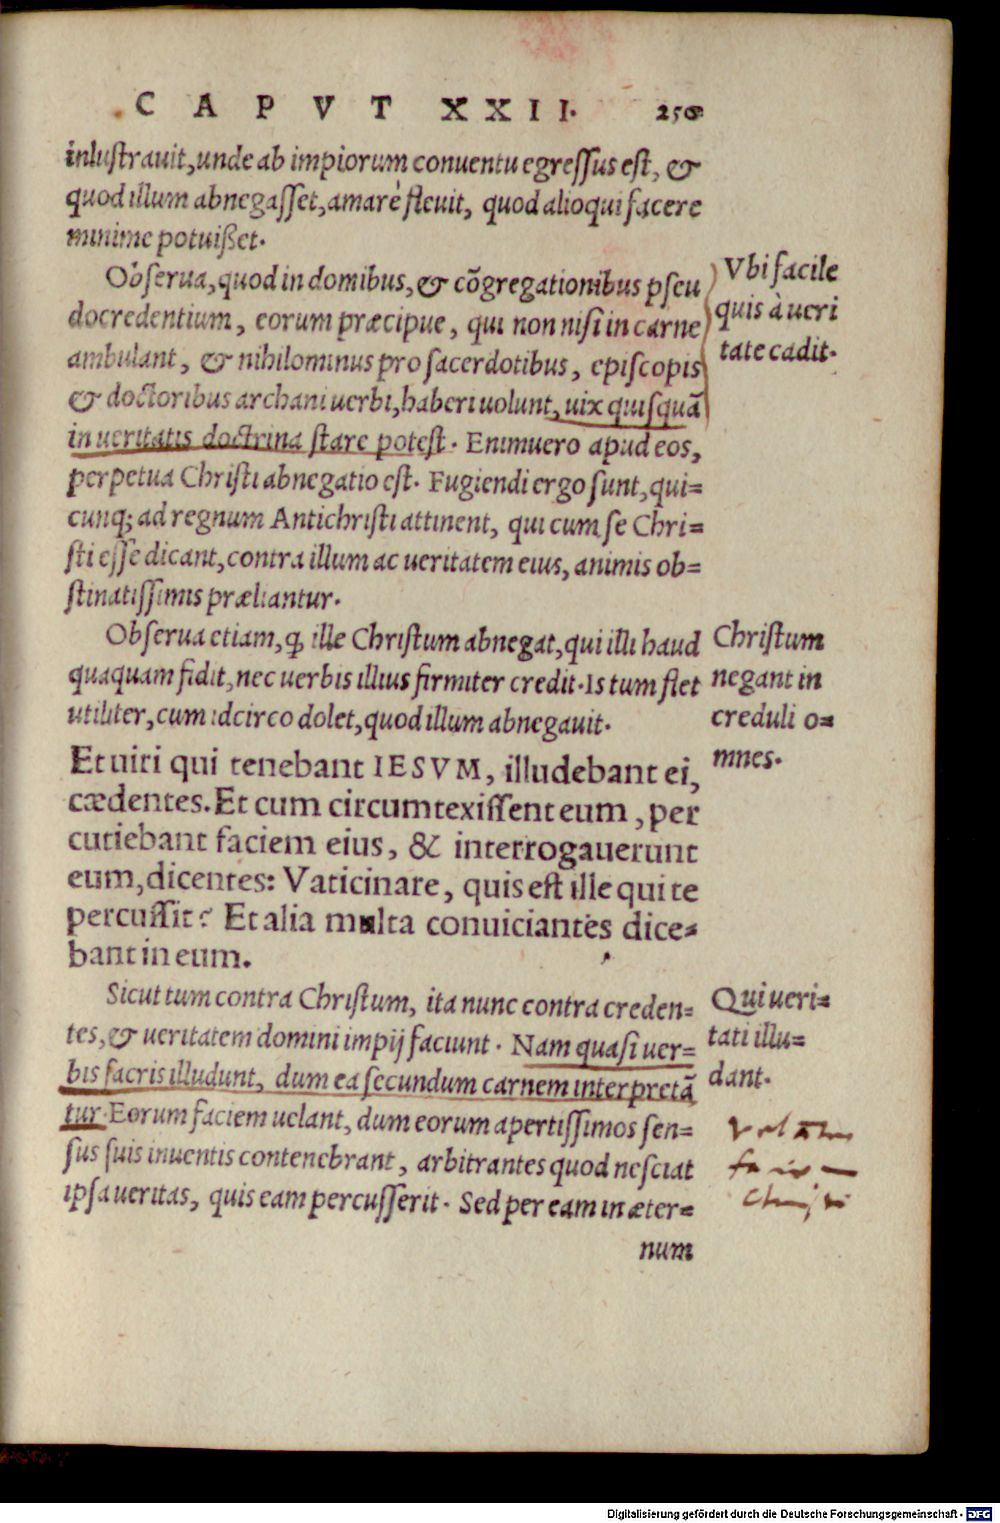 CAPVT XXII.
inlustrauit, unde ab impiorum conuentu egressus est, &
quod illum abnegasset, amarè fleuit, quod alioqui facere
minime potuißet.
Obserua, quod in domibus, & cõgregationibus pseu
docredentium, eorum præcipue, qui non nisi in carne
ambulant, & nihilominus pro sacerdotibus, episcopis
& doctoribus archani uerbi, haberi uolunt, uix quisquã
in ueritatis doctrina stare potest. Enimuero apud eos,
perpetua Christi abnegatio est. Fugiendi ergo sunt, qui=
cunq; ad regnum Antichristi attinent, qui cum se Chri=
sti esse dicant, contra illum ac ueritatem eius, animis ob=
stinatissimis præliantur.
Vbi facile
quis à ueri
tate cadit.
Obserua etiam, ꝙ ille Christum abnegat, qui illi haud
quaquam fidit, nec uerbis illius firmiter credit. Is tum flet
utiliter, cum idcirco dolet, quod illum abnegauit.
Christum
negant in
creduli o=
mnes.
Et uiri qui tenebant IESVM, illudebant ei,
cædentes. Et cum circumtexissent eum, per
cutiebant faciem eius, & interrogauerunt
eum, dicentes: Vaticinare, quis est ille qui te
percussit? Et alia multa conuiciantes dice=
bant in eum.
Sicut tum contra Christum, ita nunc contra creden=
tes, & ueritatem domini impij faciunt. Nam quasi uer=
bis sacris illudunt, dum ea secundum carnem interpretã
tur. Eorum faciem uelant, dum eorum apertissimos sen=
sus suis inuentis contenebrant, arbitrantes quod nesciat
ipsa ueritas, quis eam percusserit. Sed per eam in æter=
num
Qui ueri=
tati illu=
dant.
Digitalisierung gefördert durch die Deutsche Forschungsgemeinschaft - DFG